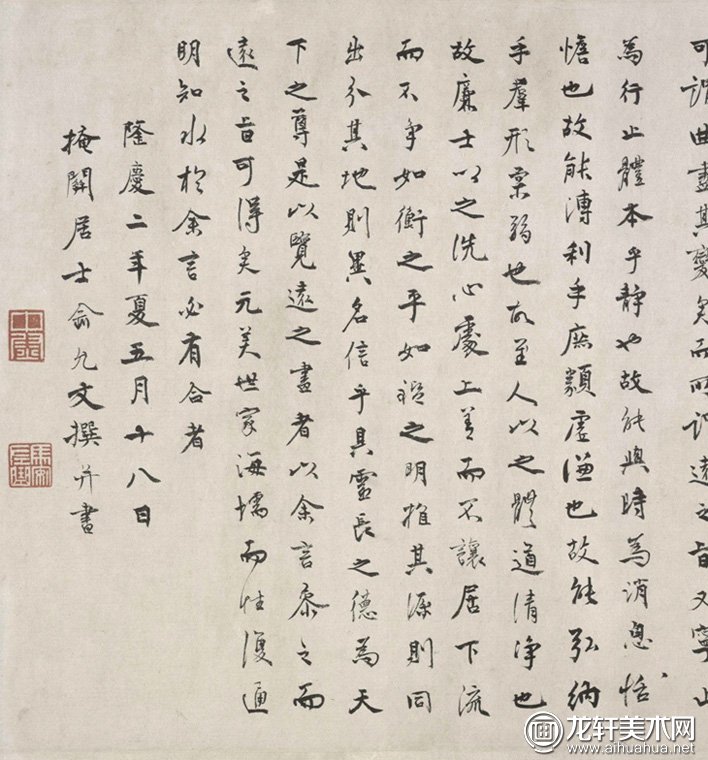 可謂曲盡其變矣而所謂遠之旨又寧止
為行止體本乎靜也故能與時為消息恬
憺也故能溥利乎庶類虛謙也故能弘納
乎羣形柔弱也故至人以之體道清净也
故廉士以之洗心處上善而不讓居下流
而不爭如衡之平如鑑之明推其源則同
出分其地則異名信乎具靈長之德為天
下之尊是以覽遠之畫者以余言參之而
遠之旨可得矣元美世家海壖而性復通
明知水於余言必有合者
隆慶二年夏五月十八日
掩關居士俞允文撰并書
龙轩美术网
www.aihuahua.net